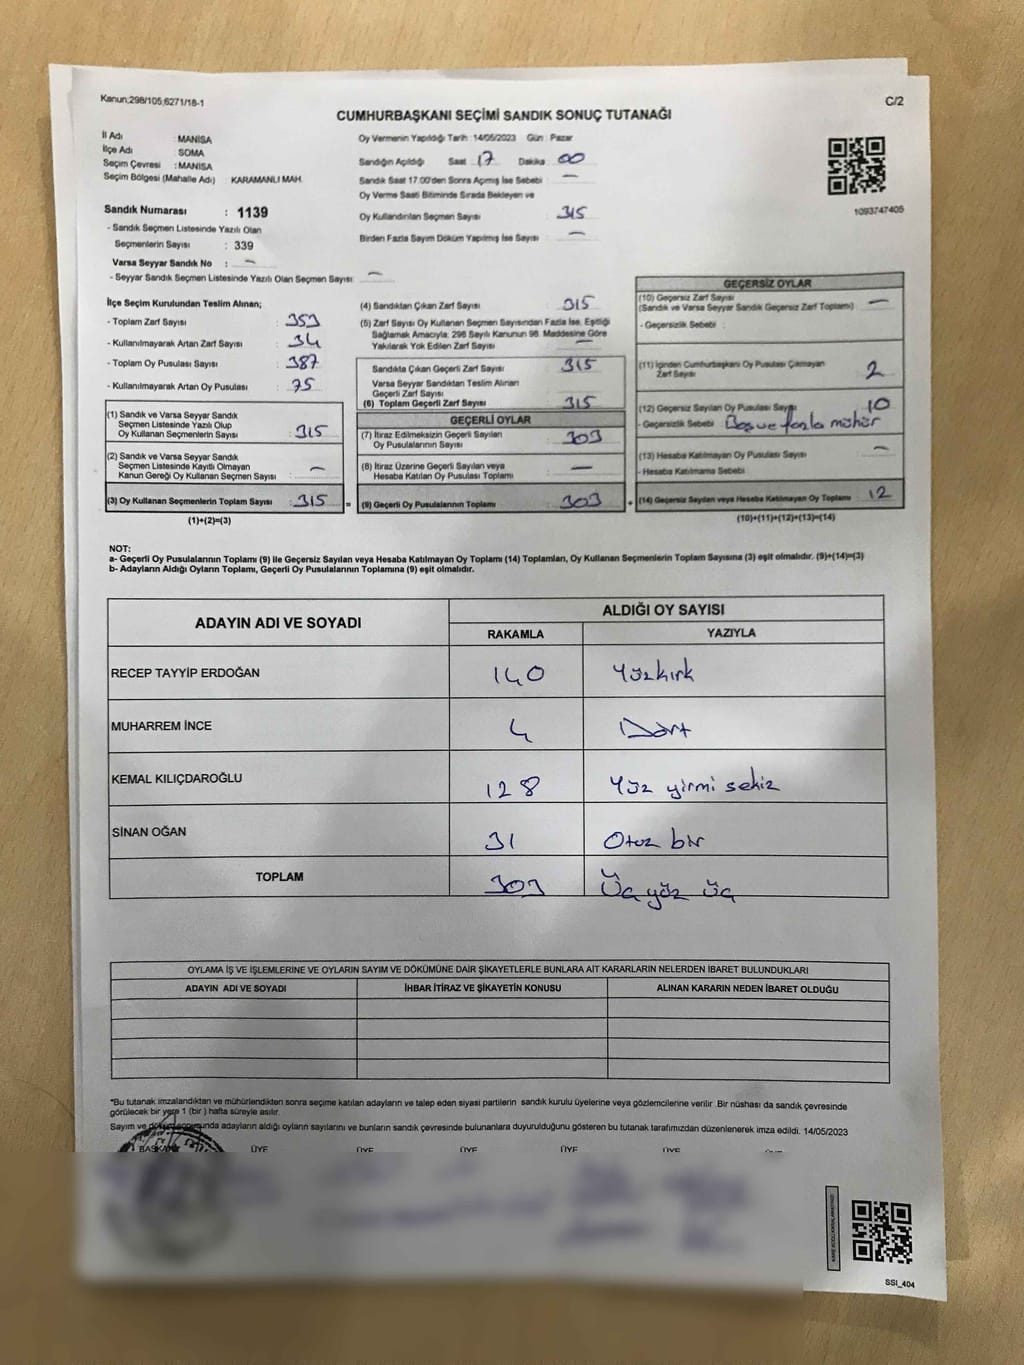 Kanun;298/105;6271/18-1
C/2
CUMHURBAŞKANI SEÇİMİ SANDIK SONUÇ TUTANAĞI
İl Adı MANİSA
İlçe Adı SOMA
Seçim Çevresi : MANİSA
Seçim Bölgesi (Mahalle Adı) KARAMANLI MAH.
Oy Vermenin Yapıldığı Tarih : 14/05/2023 Gün : Pazar
Sandığın Açıldığı Saat 17 Dakika 00
Sandık Saat 17:00'den Sonra Açımış İse Sebebi : -
Oy Verme Saati Bitiminde Sırada Bekleyen ve
Oy Kullandırılan Seçmen Sayısı : 315
Birden Fazla Sayım Döküm Yapılmış İse Sayısı : -
1093747405
Sandık Numarası : 1139
- Sandık Seçmen Listesinde Yazılı Olan
Seçmenlerin Sayısı : 339
Varsa Seyyar Sandık No : -
- Seyyar Sandık Seçmen Listesinde Yazılı Olan Seçmen Sayısı : -
İlçe Seçim Kurulundan Teslim Alınan;
- Toplam Zarf Sayısı : 353
- Kullanılmayarak Artan Zarf Sayısı : 34
- Toplam Oy Pusulası Sayısı : 387
- Kullanılmayarak Artan Oy Pusulası : 75
(1) Sandık ve Varsa Seyyar Sandık
Seçmen Listesinde Yazılı Olup
Oy Kullanan Seçmenlerin Sayısı : 315
(2) Sandık ve Varsa Seyyar Sandık
Seçmen Listesinde Kayıtlı Olmayan
Kanun Gereği Oy Kullanan Seçmen Sayısı : -
(3) Oy Kullanan Seçmenlerin Toplam Sayısı : 315 =
(1)+(2)=(3)
(4) Sandıktan Çıkan Zarf Sayısı : 315
(5) Zarf Sayısı Oy Kullanan Seçmen Sayısından Fazla İse, Eşitliği
Bağlamak Amacıyla; 298 Sayılı Kanunun 98. Maddesine Göre
Yakılarak Yok Edilen Zarf Sayısı : -
Sandıkta Çıkan Geçerli Zarf Sayısı : 315
Varsa Seyyar Sandıktan Teslim Alınan
Geçerli Zarf Sayısı
(6) Toplam Geçerli Zarf Sayısı : 315
GEÇERLİ OYLAR
(7) İtiraz Edilmeksizin Geçerli Sayılan
Oy Pusulalarının Sayısı : 303
(8) İtiraz Üzerine Geçerli Sayılan veya
Hesaba Katılan Oy Pusulası Toplamı : -
(9) Geçerli Oy Pusulalarının Toplamı : 303 +
GEÇERSİZ OYLAR
(10) Geçersiz Zarf Sayısı
(Sandık ve Varsa Seyyar Sandık Geçersiz Zarf Toplamı) : -
- Geçersizlik Sebebi :
(11) İçinden Cumhurbaşkanı Oy Pusulası Çıkmayan
Zarf Sayısı : 2
(12) Geçersiz Sayılan Oy Pusulası Sayısı : 10
- Geçersizlik Sebebi : Boş ve fazla mühür
(13) Hesaba Katılmayan Oy Pusulası Sayısı : -
- Hesaba Katılmama Sebebi :
(14) Geçersiz Sayılan veya Hesaba Katılmayan Oy Toplamı : 12
(10)+(11)+(12)+(13)=(14)
NOT:
a- Geçerli Oy Pusulalarının Toplamı (9) ile Geçersiz Sayılan veya Hesaba Katılmayan Oy Toplamı (14) Toplamları, Oy Kullanan Seçmenlerin Toplam Sayısına (3) eşit olmalıdır. (9)+(14)=(3)
b- Adayların Aldığı Oyların Toplamı, Geçerli Oy Pusulalarının Toplamına (9) eşit olmalıdır.
ADAYIN ADI VE SOYADI ALDIĞI OY SAYISI
RAKAMLA YAZIYLA
RECEP TAYYİP ERDOĞAN 140 Yüzkırk
MUHARREM İNCE 4 Dört
KEMAL KILIÇDAROĞLU 128 Yüz yirmi sekiz
SİNAN OĞAN 31 Otuz bir
TOPLAM 303 Üç yüz üç
OYLAMA İŞ VE İŞLEMLERİNE VE OYLARIN SAYIM VE DÖKÜMÜNE DAİR ŞİKAYETLERLE BUNLARA AİT KARARLARIN NELERDEN İBARET BULUNDUKLARI
ADAYIN ADI VE SOYADI İHBAR İTİRAZ VE ŞİKAYETİN KONUSU ALINAN KARARIN NEDEN İBARET OLDUĞU
*Bu tutanak imzalandıktan ve mühürlendikten sonra seçime katılan adayların ve talep eden siyasi partilerin sandık kurulu üyelerine veya gözlemcilerine verilir .Bir nüshası da sandık çevresinde
görülecek bir yere 1 (bir ) hafta süreyle asılır.
Sayım ve dökümü sonunda adayların aldığı oyların sayılarını ve bunların sandık çevresinde bulunanlara duyurulduğunu gösteren bu tutanak tarafımızdan düzenlenerek imza edildi. 14/05/2023
BAŞKAN ÜYE ÜYE ÜYE ÜYE ÜYE
SSI_404